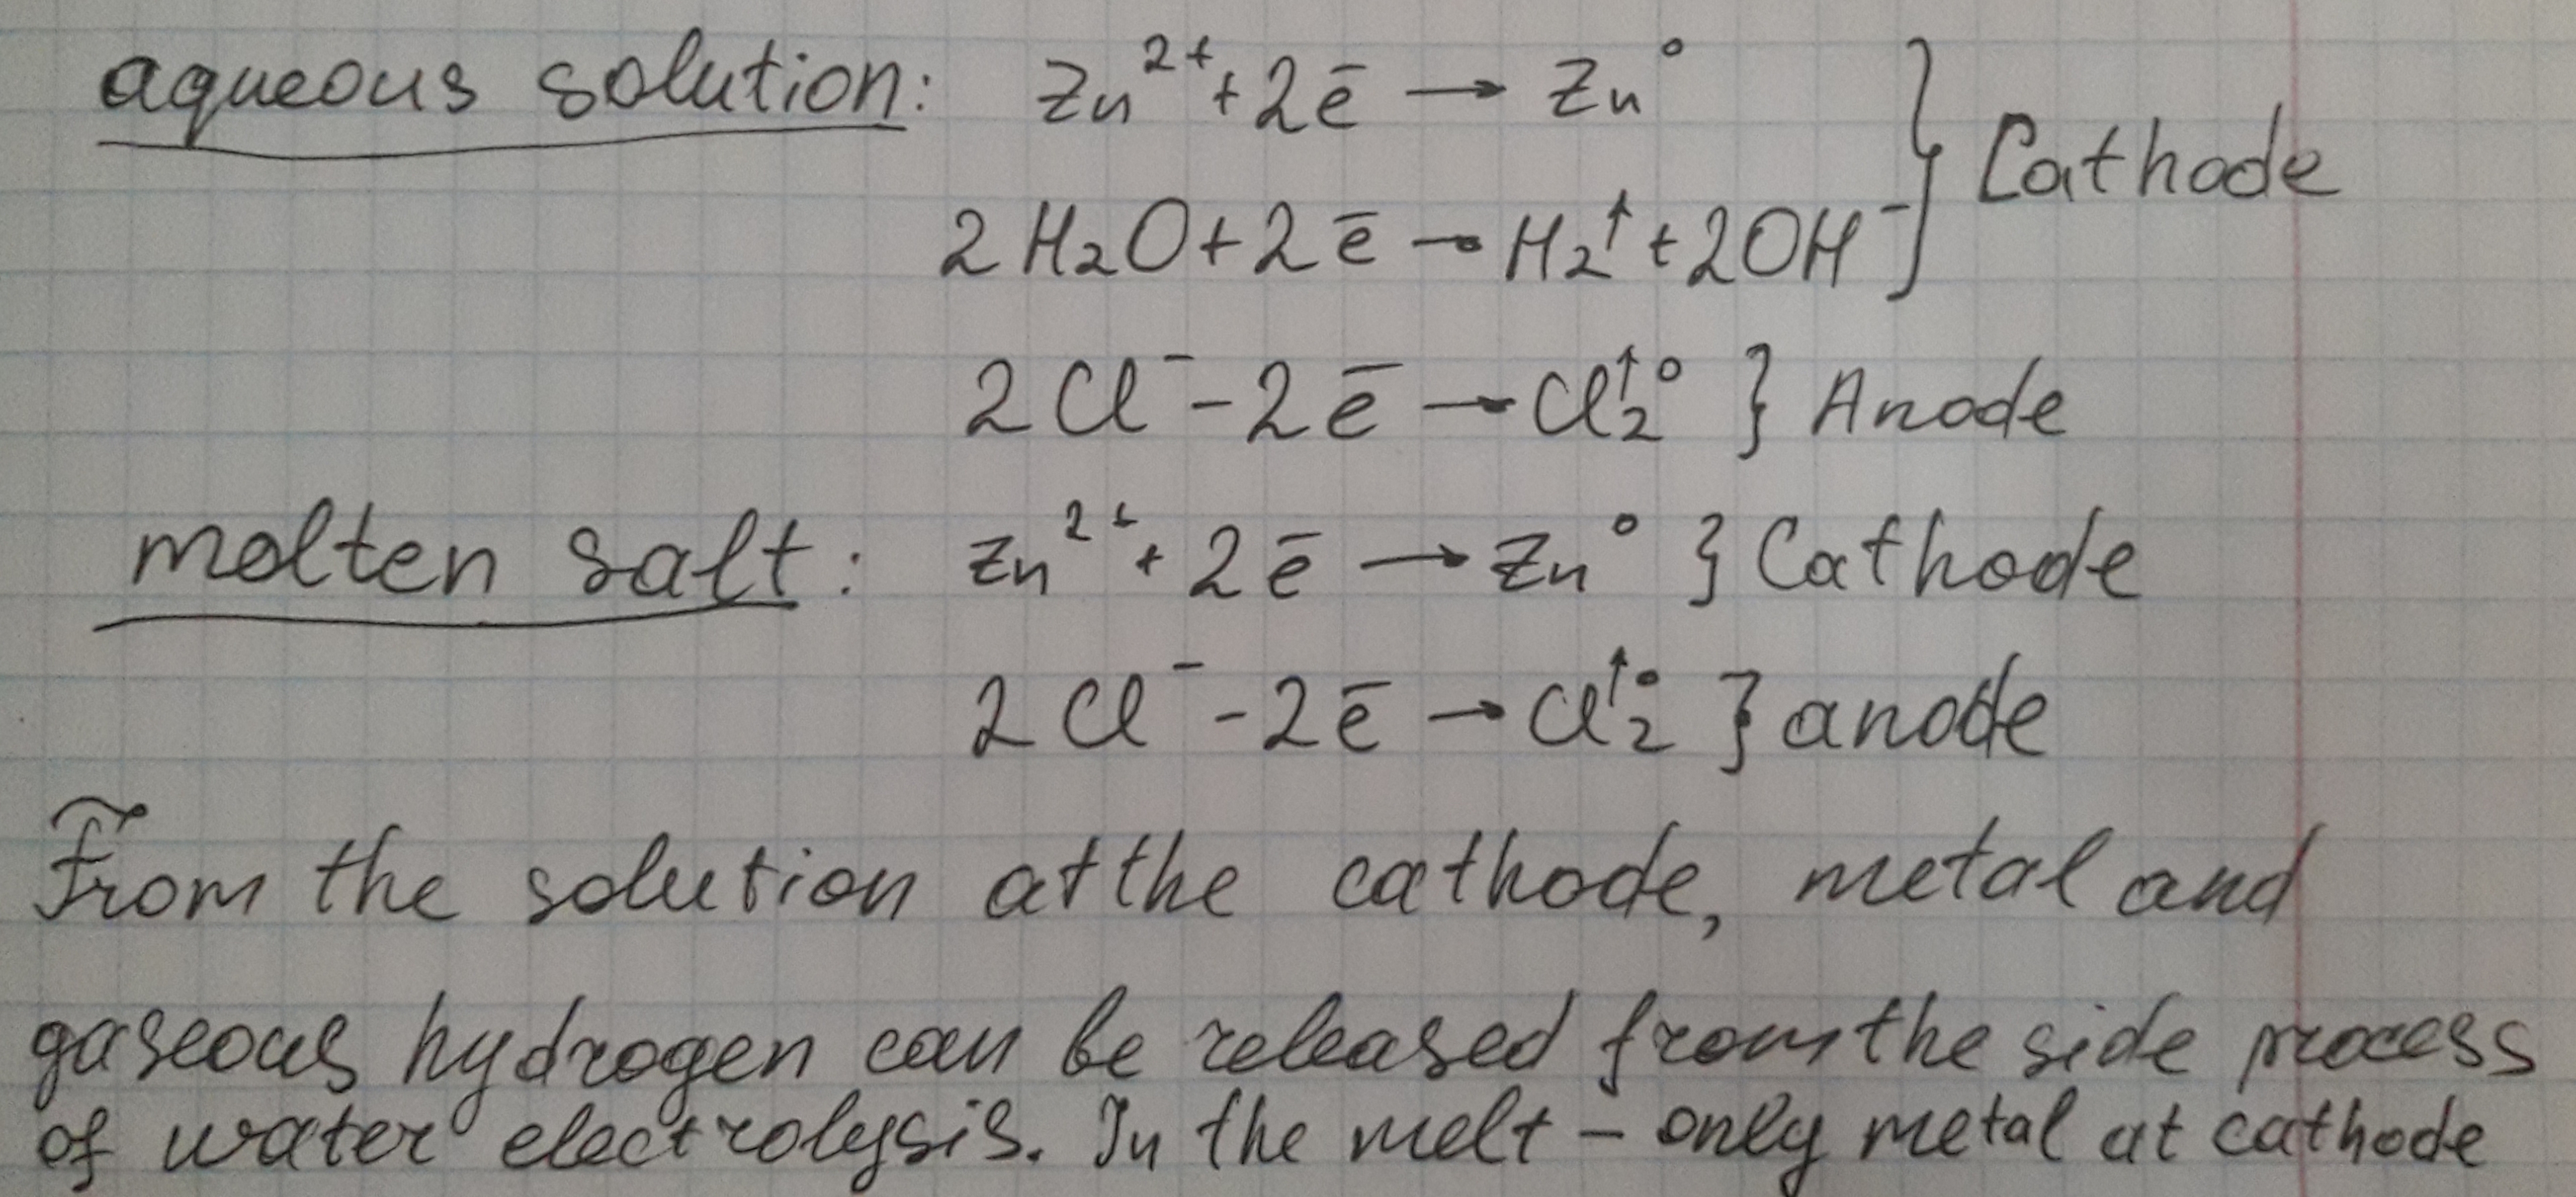 aqueous solution: Zn²⁺+2ē → Zn⁰ } Cathode
2H₂O+2ē → H₂↑+2OH⁻
2Cl⁻-2ē → Cl₂↑⁰ } Anode
molten salt: Zn²⁺+2ē → Zn⁰ } Cathode
2Cl⁻-2ē → Cl₂↑⁰ } anode
From the solution at the cathode, metal and
gaseous hydrogen can be released from the side process
of water electrolysis. In the melt – only metal at cathode